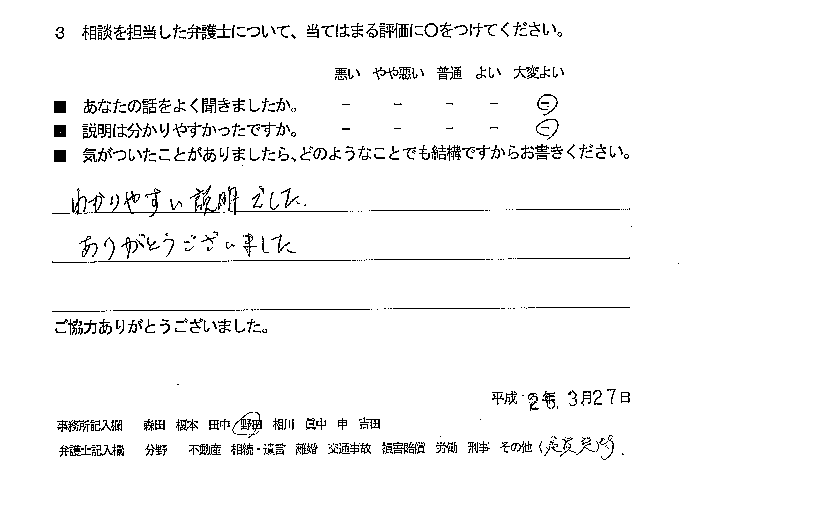 3 相談を担当した弁護士について、当てはまる評価に〇をつけてください。
悪い やや悪い 普通 よい 大変よい
■ あなたの話をよく聞きましたか。 － － － － －
■ 説明は分かりやすかったですか。 － － － － －
■ 気がついたことがありましたら、どのようなことでも結構ですからお書きください。
わかりやすい説明でした.
ありがとうございました
ご協力ありがとうございました。
平成 26. 3月27日
事務所記入欄 森田 榎本 田中 野田 相川 眞中 申 吉田
弁護士記入欄 分野 不動産 相続・遺言 離婚 交通事故 損害賠償 労働 刑事 その他（